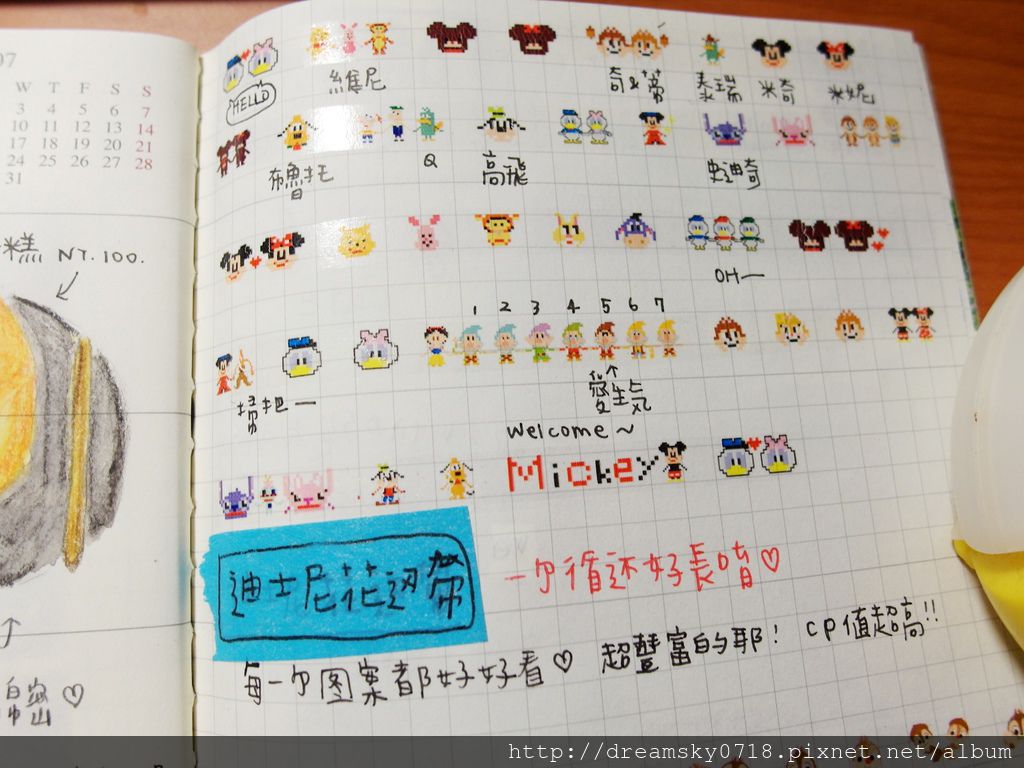 07
W T F S S
3 4 5 6 7
10 11 12 13 14
17 18 19 20 21
24 25 26 27 28
31
糕 NT.100.
HELLO
維尼
奇&蒂
泰瑞
米奇
米妮
布魯托
Q
高飛
史迪奇
OH一
1 2 3 4 5 6 7
掃把一
愛生気
welcome~
Mickey
迪士尼花边帶
一勺循还好長唷♡
每一勺图案都好好看♡ 超豐富的耶! cp值超高!!
http://dreamsky0718.pixnet.net/album